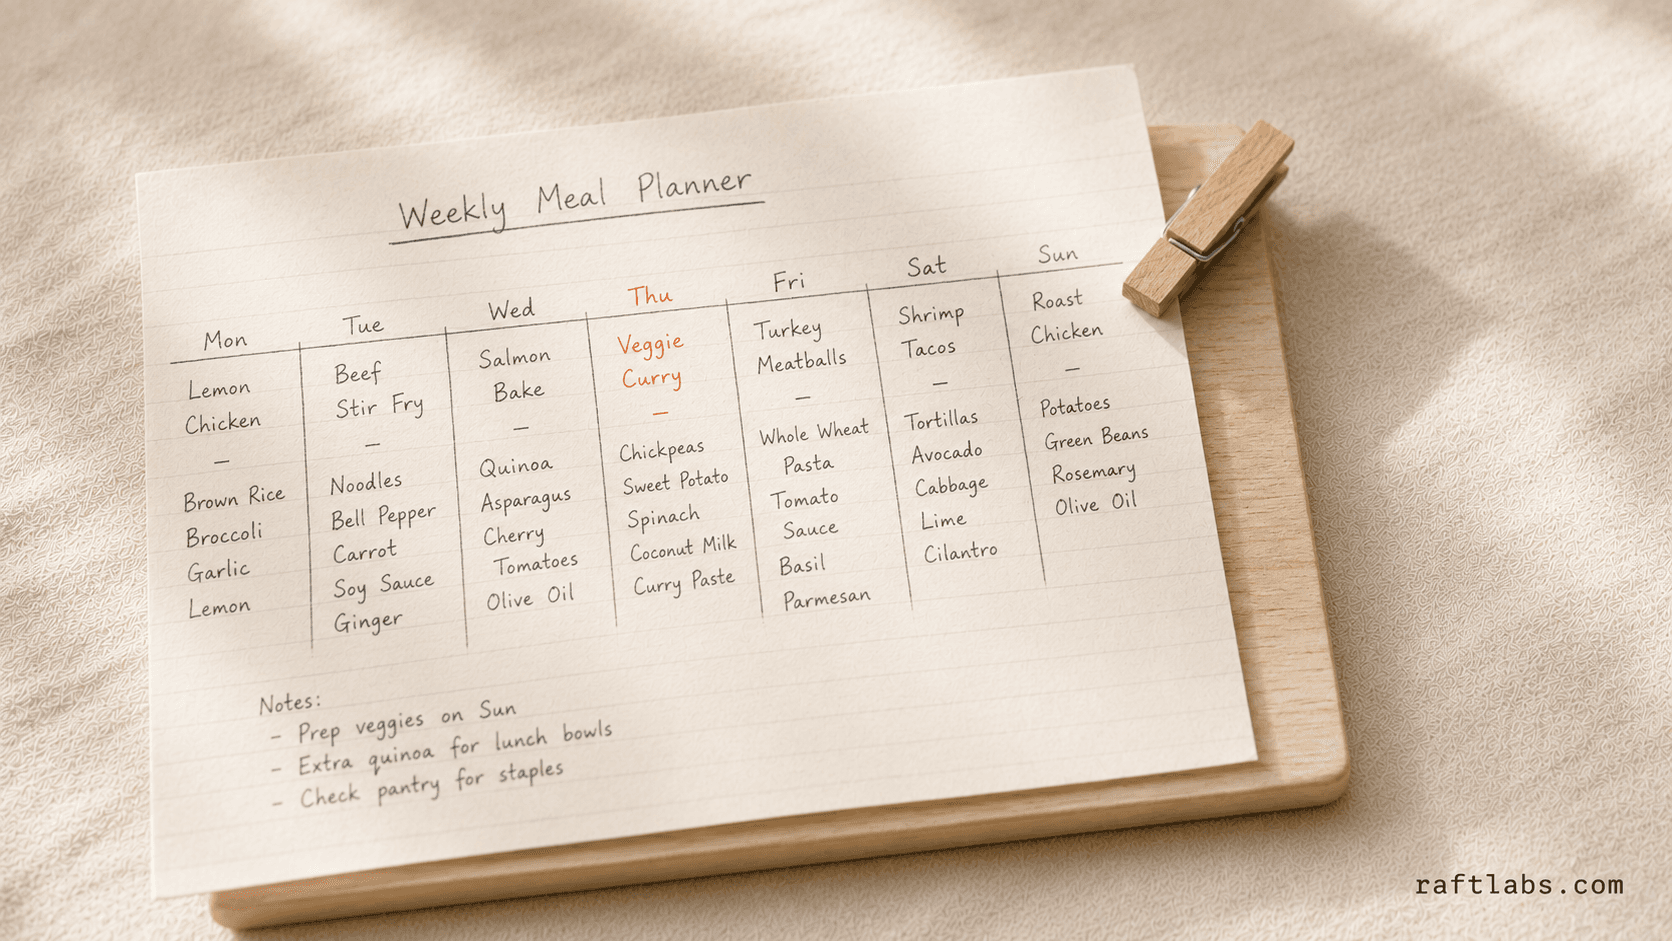 Weekly Meal Planner
Mon
Lemon
Chicken
—
Brown Rice
Broccoli
Garlic
Lemon
Tue
Beef
Stir Fry
—
Noodles
Bell Pepper
Carrot
Soy Sauce
Ginger
Wed
Salmon
Bake
—
Quinoa
Asparagus
Cherry
Tomatoes
Olive Oil
Thu
Veggie
Curry
—
Chickpeas
Sweet Potato
Spinach
Coconut Milk
Curry Paste
Fri
Turkey
Meatballs
—
Whole Wheat
Pasta
Tomato
Sauce
Basil
Parmesan
Sat
Shrimp
Tacos
—
Tortillas
Avocado
Cabbage
Lime
Cilantro
Sun
Roast
Chicken
—
Potatoes
Green Beans
Rosemary
Olive Oil
Notes:
– Prep veggies on Sun
– Extra quinoa for lunch bowls
– Check pantry for staples
raftlabs.com